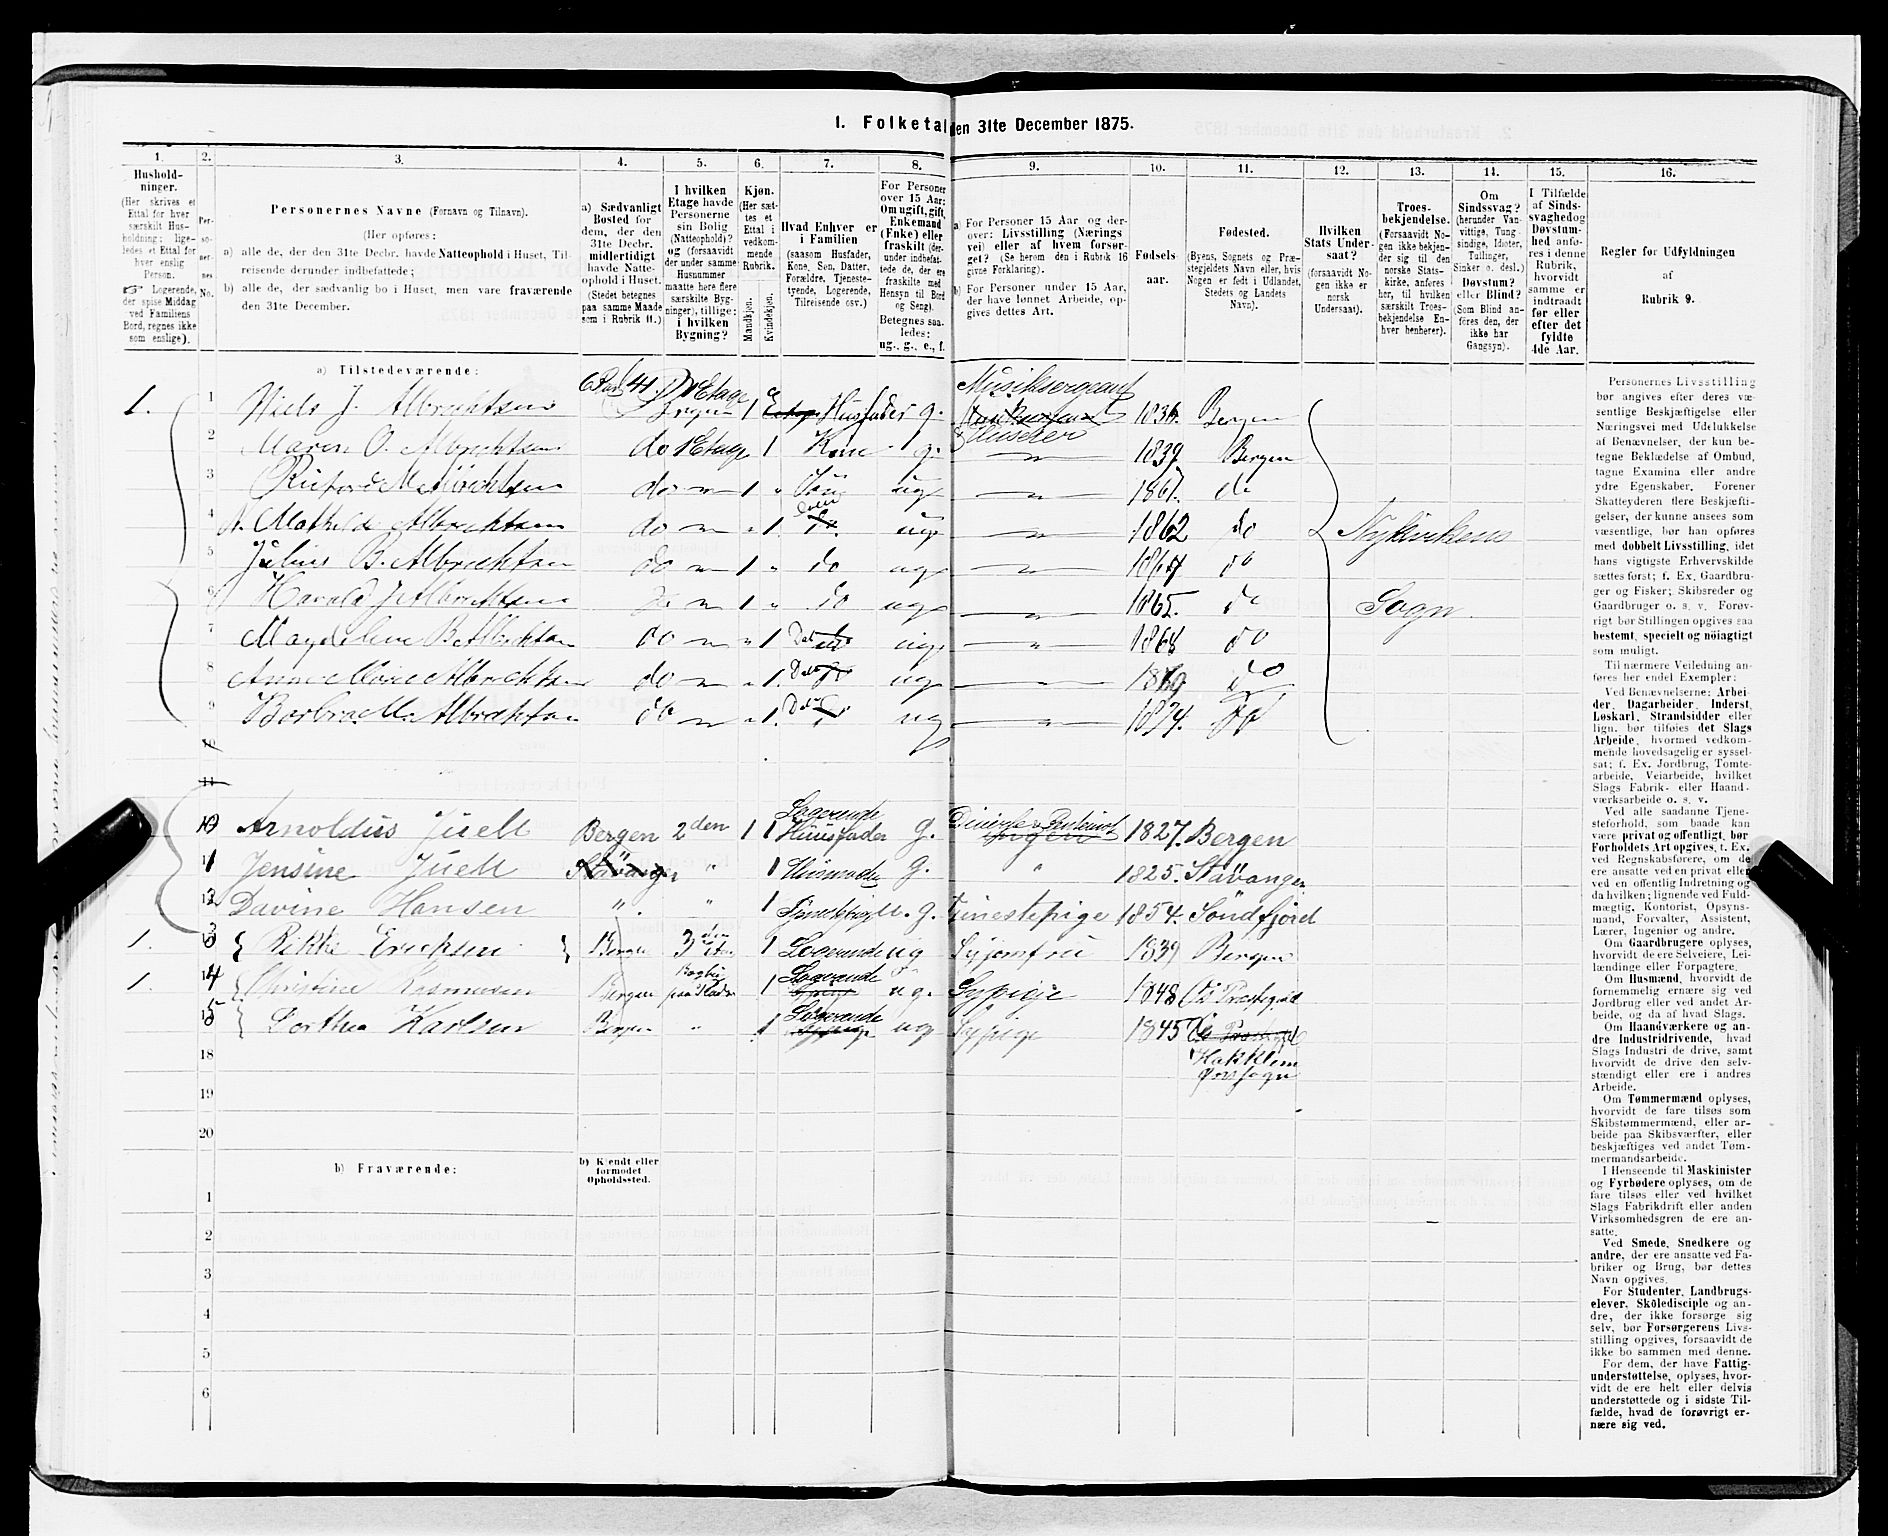 1. Folketal den 31te December 1875.
1. 2. 3. 4. 5. 6. 7. 8. 9. 10. 11. 12. 13. 14. 15. 16.
Hushold-
ninger.
(Her skrives et
Ettal for hver
særskilt Hus-
holdning; lige-
ledes et Ettal for
hver enslig
Person.
☞ Logerende,
der spise Middag
ved Familiens
Bord, regnes ikke
som enslige).
Per-
so-
ner-
nes
No.
Personernes Navne (Fornavn og Tilnavn).
(Her opføres:
a) alle de, der den 31te Decbr. havde Natteophold i Huset, Til-
reisende derunder indbefattede;
b) alle de, der sædvanlig bo i Huset, men vare fraværende
den 31te December.
a) Sædvanligt
Bosted for
dem, der den
31te Decbr.
midlertidigt
havde Natte-
ophold i Huset.
(Stedet betegnes
paa samme Maade
som i Rubrik 11.)
I hvilken
Etage havde
Personerne
sin Bolig
(Natteophold)?
og (forsaavidt
der under samme
Husnummer
maatte høre flere
særskilte Byg-
ninger), tillige:
i hvilken
Bygning?
Kjøn.
(Her sæt-
tes et
Ettal i
vedkom-
mende
Rubrik.
Mandkjøn.
Kvindekjøn.
Hvad Enhver er
i Familien
(saasom Husfader,
Kone, Søn, Datter,
Forældre, Tjeneste-
tyende, Logerende,
Tilreisende osv.)
For Personer
over 15 Aar:
Om ugift, gift,
Enkemand
(Enke) eller
fraskilt (der-
under indbefat-
tede de, der ere
fraskilte med
Hensyn til Bord
og Seng).
Betegnes saa-
ledes:
ug., g., e., f.
a) For Personer 15 Aar og der-
over: Livsstilling (Nærings
vei) eller af hvem forsør-
get? (Se herom den i Rubrik 16
givne Forklaring).
b) For Personer under 15 Aar,
der have lønnet Arbeide, op-
gives dettes Art.
Fødsels-
aar.
Fødested.
(Byens, Sognets og Præ-
stegjeldets Navn eller, hvis
Nogen er født i Udlandet,
Stedets og Landets
Navn).
Hvilken
Stats Under-
saat?
(forsaavidt No-
gen ikke er
norsk
Undersaat).
Troes-
bekjendelse.
(Forsaavidt No-
gen ikke bekjen-
der sig til den
norske Stats-
kirke, anføres
her, til hvilken
særskilt Troes-
bekjendelse En-
hver henhører).
Om
Sindssvag?
(herunder Van-
vittige, Tung-
sindige, Idioter,
Tullinger,
Sinker o. desl.)
Døvstum?
eller Blind?
(Som Blind an-
føres den, der
ikke har
Gangsyn).
I Tilfælde
af Sinds-
svaghed og
Døvstum-
hed anfø-
res i denne
Rubrik,
hvorvidt
samme er
indtraadt
før eller
efter det
fyldte
4de Aar.
Regler for Udfyldningen
af
Rubrik 9.
a) Tilstedeværende:
1. 1 Niels J. Albrechtsen Bergen 1 Etage 1 Husfader g. Musiksergeant 1836. Bergen
2 Maren O. Albrechtsen do 1 Etage 1 Kone g. 1839 Bergen
3 Albrechtsen do 1 Søn ug 1861. do
4 N. Mathilde Albrechtsen do 1. Datter ug 1862 do Nykirkens
5 Julius B. Albrechtsen do 1 do ug do
6 Harald J Albrechtsen do 1 do ug 1865. do Sogn
7 Magdelene B. Albrechtsen do 1 Dat ug 1868 do
8 Anne Albrechtsen do 1. Dat ug do
9 Albrechtsen do 1. Dat ug 1874. do
10
11
10 Arnoldus Juell Bergen 2den 1 Logerende Huusfader G. 1827. Bergen
11 Jensine Juell Stavanger " 1 Husmoder G. " 1825. Stavanger
12 Davine Hansen " " 1 U. G. Tjenestepige 1854. Söndfjord
1. 13 Rikke Ericksen Bergen 3 1 Logerende ug Syjomfru 1839 Bergen
1. 14 Christine Rasmusen Bergen 1 Logerende ug. Sypige 1848
15 Dorthea Karlsen Bergen " 1 Logerende ug Sypige 1845
18
19
20
b) Fraværende:
b) Kjendt eller
formodet
Opholdssted.
1
2
3
4
5
6
Personernes Livsstilling
bør angives efter deres væ-
sentlige Beskjæftigelse eller
Næringsvei med Udelukkelse
af Benævnelser, der kun be-
tegne Beklædelse af Ombud,
tagne Examina eller andre
ydre Egenskaber. Forener
Skatteyderen flere Beskjæfti-
gelser, der kunne ansees som
væsentlige, bør han opføres
med dobbelt Livsstilling, idet
hans vigtigste Erhvervskilde
sættes først; f. Ex. Gaardbru-
ger og Fisker; Skibsreder og
Gaardbruger o. s. v. Forøv-
rigt bør Stillingen opgives saa
bestemt, specielt og nöiagtigt
som muligt.
Til nærmere Veiledning an-
føres her endel Exempler:
Ved Benævnelserne: Arbei-
der, Dagarbeider, Inderst,
Løskarl, Strandsidder eller
lign. bør tilføies det Slags
Arbeide, hvormed vedkom-
mende hovedsagelig er syssel-
sat; f. Ex. Jordbrug, Tomte-
arbeide, Veiarbeide, hvilket
Slags Fabrik- eller Haand-
værksarbeide o. s. v.
Ved alle saadanne Tjene-
steforhold, som baade kan
være privat og offentligt, bør
Forholdets Art opgives, t. Ex.
ved Regnskabsførere, om de
ere ansatte ved en privat eller
ved en offentlig Indretning og
da hvilken; lignende ved Fuld-
mægtig, Kontorist, Opsyns-
mand, Forvalter, Assistent,
Lærer, Ingeniør og andre.
Om Gaardbrugere oplyses,
hvorvidt de ere Selveiere, Lei-
lændinge eller Forpagtere.
Om Husmænd, hvorvidt de
fornemmelig ernære sig ved
Jordbrug eller ved andet Ar-
beide, og da af hvad Slags.
Om Haandværkere og an-
dre Industridrivende, hvad
Slags Industri de drive, samt
hvorvidt de drive den selv-
stændigt eller ere i andres
Arbeide.
Om Tømmermænd oplyses,
hvorvidt de fare tilsøs som
Skibstømmermænd, eller ar-
beide paa Skibsværfter, eller
beskjæftiges ved andet Tøm-
mermandsarbeide.
I Henseende til Maskinister
og Fyrbødere oplyses, om de
fare tilsøs eller ved hvilket
Slags Fabrikdrift eller anden
Virksomhedsgren de ere an-
satte.
Ved Smede, Snedkere og
andre, der ere ansatte ved Fa-
briker og Brug, bør dettes
Navn opgives.
For Studenter, Landbrugs-
elever, Skóledisciple og an-
dre, der ikke forsørge sig
selv, bør Forsørgerens Livs-
stilling opgives, forsaavidt de
ikke bo sammen med denne.
For dem, der have Fattig-
understøttelse, oplyses, hvor-
vidt de ere helt eller delvis
understøttede og i sidste Til-
fælde, hvad de forøvrigt er-
nære sig ved.